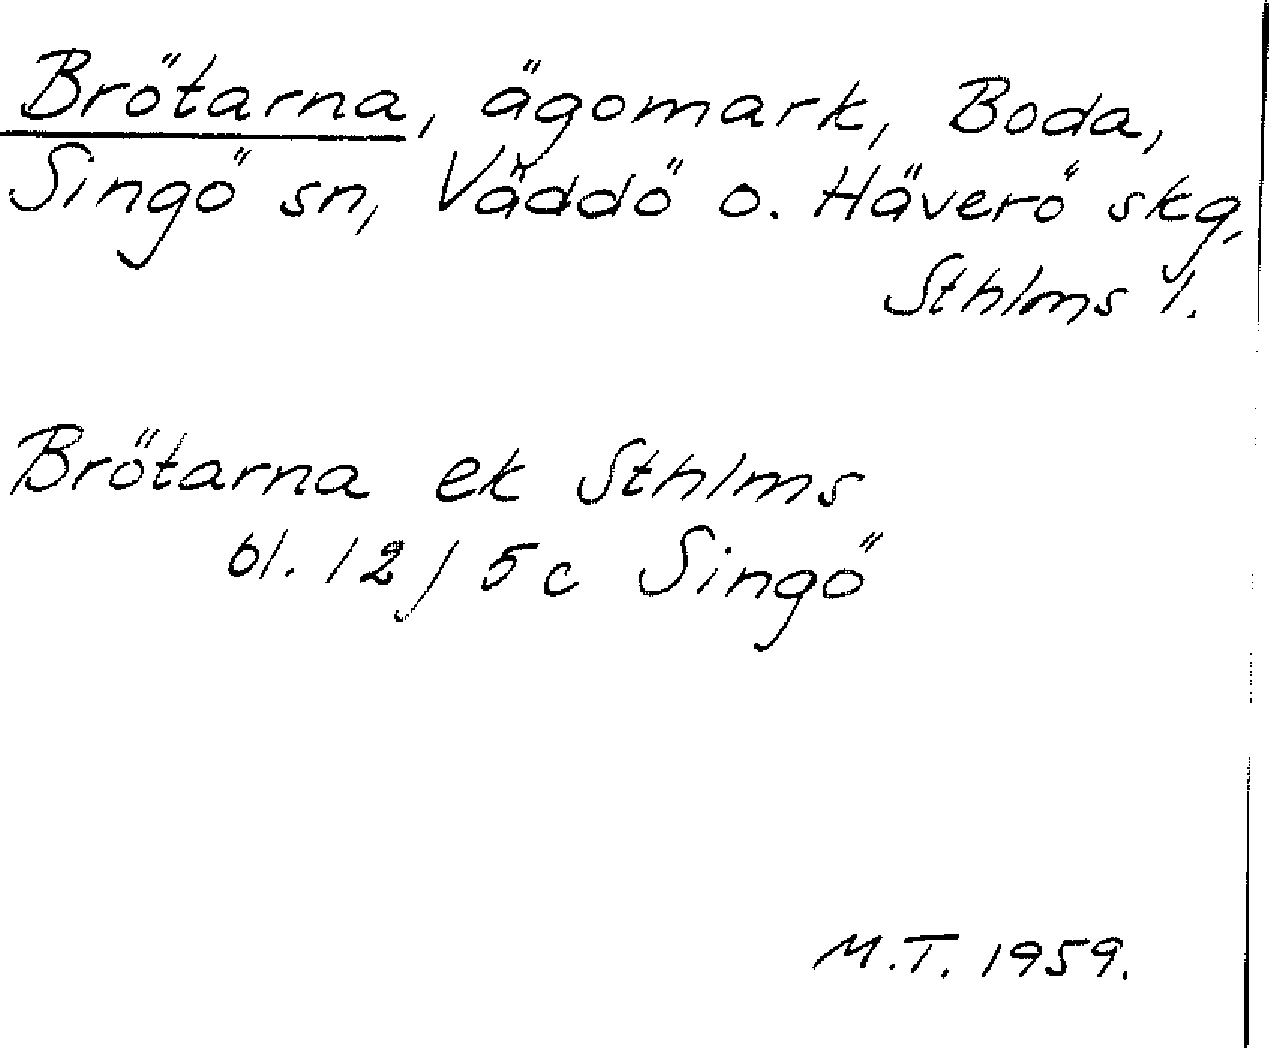 Brötarna, ägomark, Boda,
Singö sn, Väddö o. Häverö skg,
Sthlms l.
Brötarna ek Sthlms
bl. 12/5c Singö
M.T. 1959.